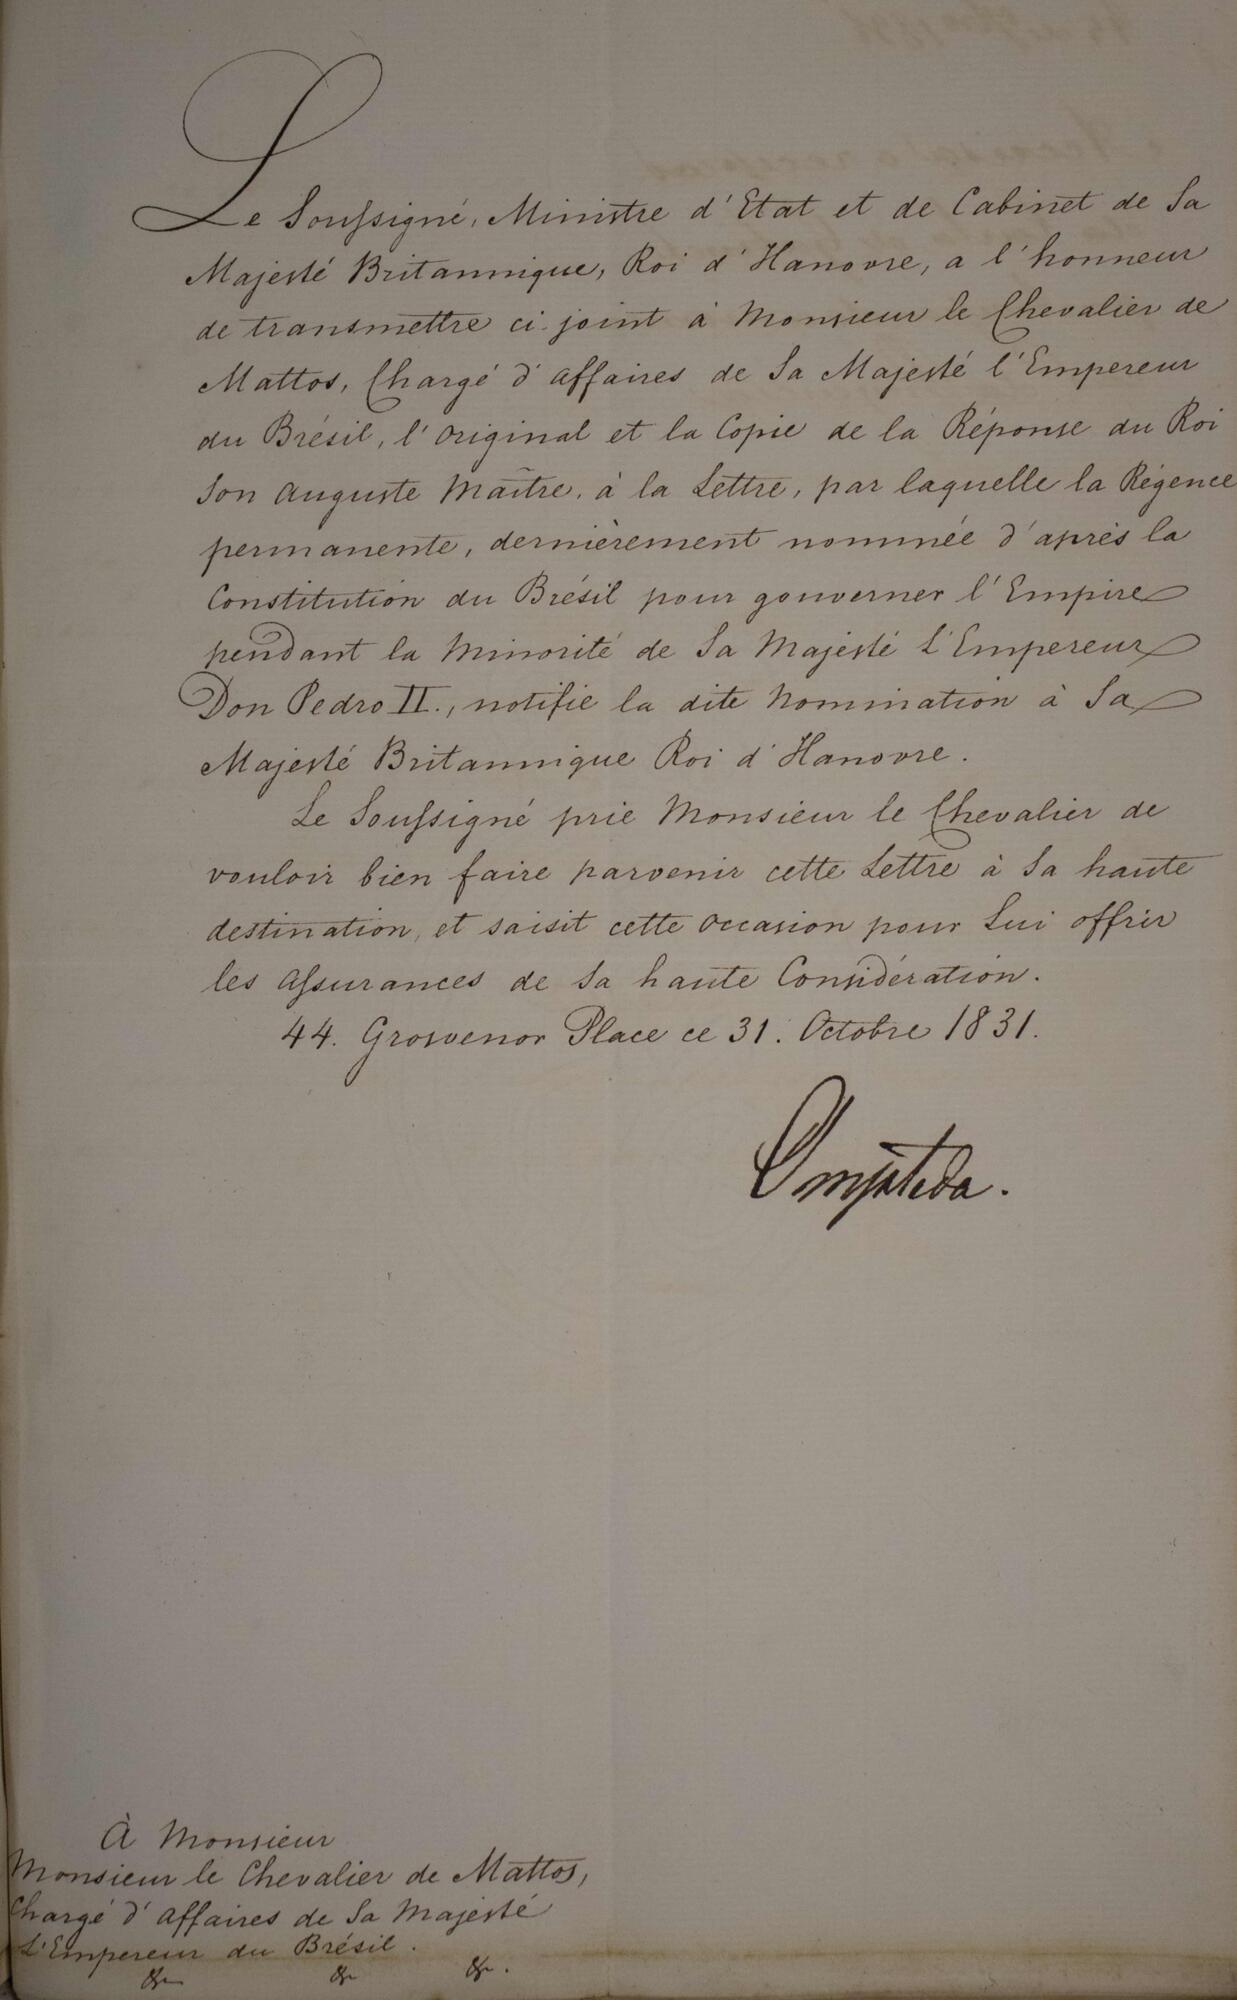 Le Soussigné, Ministre d'Etat et de Cabinet de Sa
Majesté Britannique, Roi d'Hanovre, a l'honneur
de transmettre ci-joint à Monsieur le Chevalier de
Mattos, Chargé d'affaires de Sa Majesté l'Empereur
du Brésil, l'Original et la Copie de la Réponse du Roi
Son Auguste Maître, à la Lettre, par laquelle la Régence
permanente, dernièrement nommée d'après la
Constitution du Brésil pour gouverner l'Empire
pendant la Minorité de Sa Majesté L'Empereur
Don Pedro II., notifie la dite Nomination à Sa
Majesté Britannique Roi d'Hanovre.
Le Soussigné prie Monsieur le Chevalier de
vouloir bien faire parvenir cette Lettre à Sa haute
destination, et saisit cette Occasion pour Lui offrir
les Assurances de Sa haute Considération.
44. Grosvenor Place ce 31. Octobre 1831.
Ompteda.
À Monsieur
Monsieur le Chevalier de Mattos,
Chargé d'affaires de Sa Majesté
L'Empereur du Brésil.
&c &c &c.